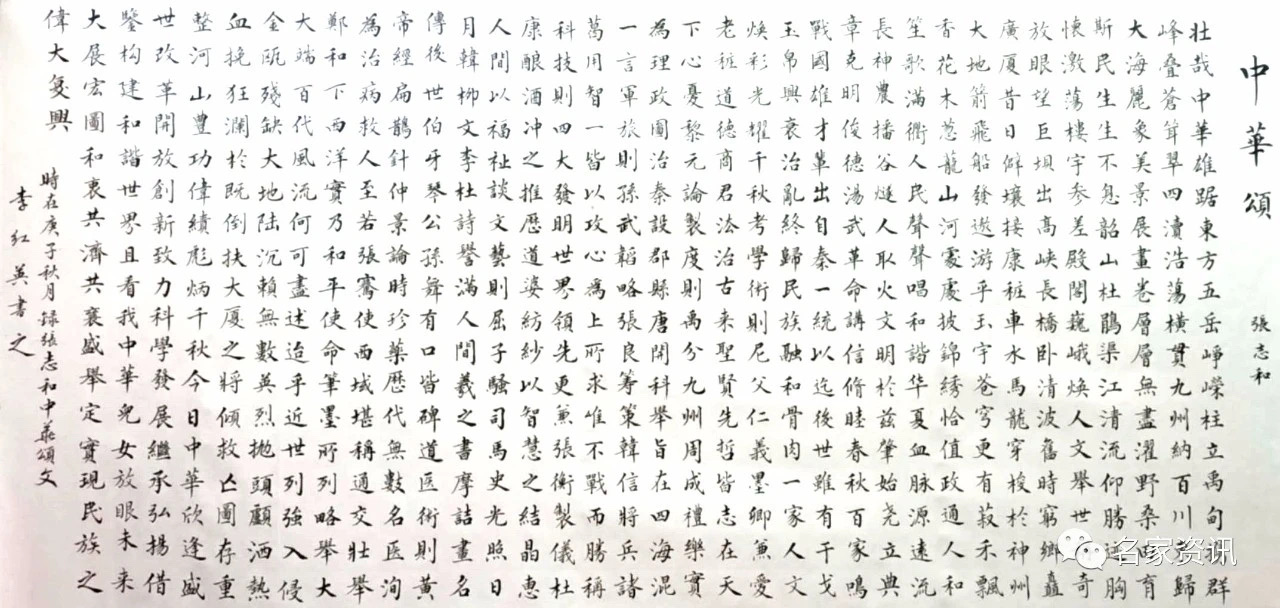 中華頌
張志和
壯哉中華雄踞東方五岳崢嶸柱立禹甸群
峰叠蒼聳翠四瀆浩蕩橫貫九州納百川歸
大海麗象美景展畫卷層層無盡濯野桑育
斯民生生不息韶山杜鵑渠江清流仰勝胸
懷激蕩樓宇參差殿閣巍峨煥人文舉世奇
放眼望巨埧出高峽長橋卧清波舊時窮鄉矗
廣厦昔日僻壤接康莊車水馬龍穿梭於神州
大地箭飛船發遨游乎玉宇蒼穹更有菽禾飄
香花木葱蘢山河處處披錦綉恰值政通人和
笙歌滿衢人民聲聲唱和諧华夏血脉源遠流
長神農播谷燧人取火文明於兹肇始尧立典
章克明俊德湯武革命講信脩睦春秋百家鳴
戰國雄才輩出自秦一統以迄後世雖有干戈
玉帛興衰治亂終歸民族融和骨肉一家人文
煥彩光耀千秋考學術則尼父仁義墨卿兼愛
老莊道德商君法治古来聖賢先哲皆志在天
下心憂黎元論製度則禹分九州周成禮樂實
為理政圖治秦設郡縣唐開科舉旨在四海混
一言軍旅則孫武韜略張良筹策韓信將兵諸
葛用智一皆以攻心為上所求惟不戰而勝稱
科技則四大發明世界領先更兼張衡製儀杜
康釀酒冲之推歷道婆紡紗以智慧之結晶惠
人間以福祉談文藝則屈子騷司馬史光照日
月韓柳文李杜詩譽滿人間羲之書摩詰畫名
傳後世伯牙琴公孫舞有口皆碑道医術則黃
帝經扁鵲針仲景論時珍藥歷代無數名医洵
為治病救人至若張騫使西域堪稱通交壯舉
鄭和下西洋實乃和平使命筆墨所列略舉大
大端百代風流何可盡述迨乎近世列強入侵
金甌殘缺大地陆沉賴無數英烈拋頭顱洒熱
血挽狂瀾於既倒扶大厦之將傾救亡圖存重
整河山豐功偉績彪炳千秋今日中華欣逢盛
世改革開放創新致力科學發展繼承弘揚借
鑒构建和諧世界且看我中華兒女放眼未来
大展宏圖和衷共濟共襄盛舉定實現民族之
偉大复興
時在庚子秋月録張志和中華頌文
李红英書之
名家资讯